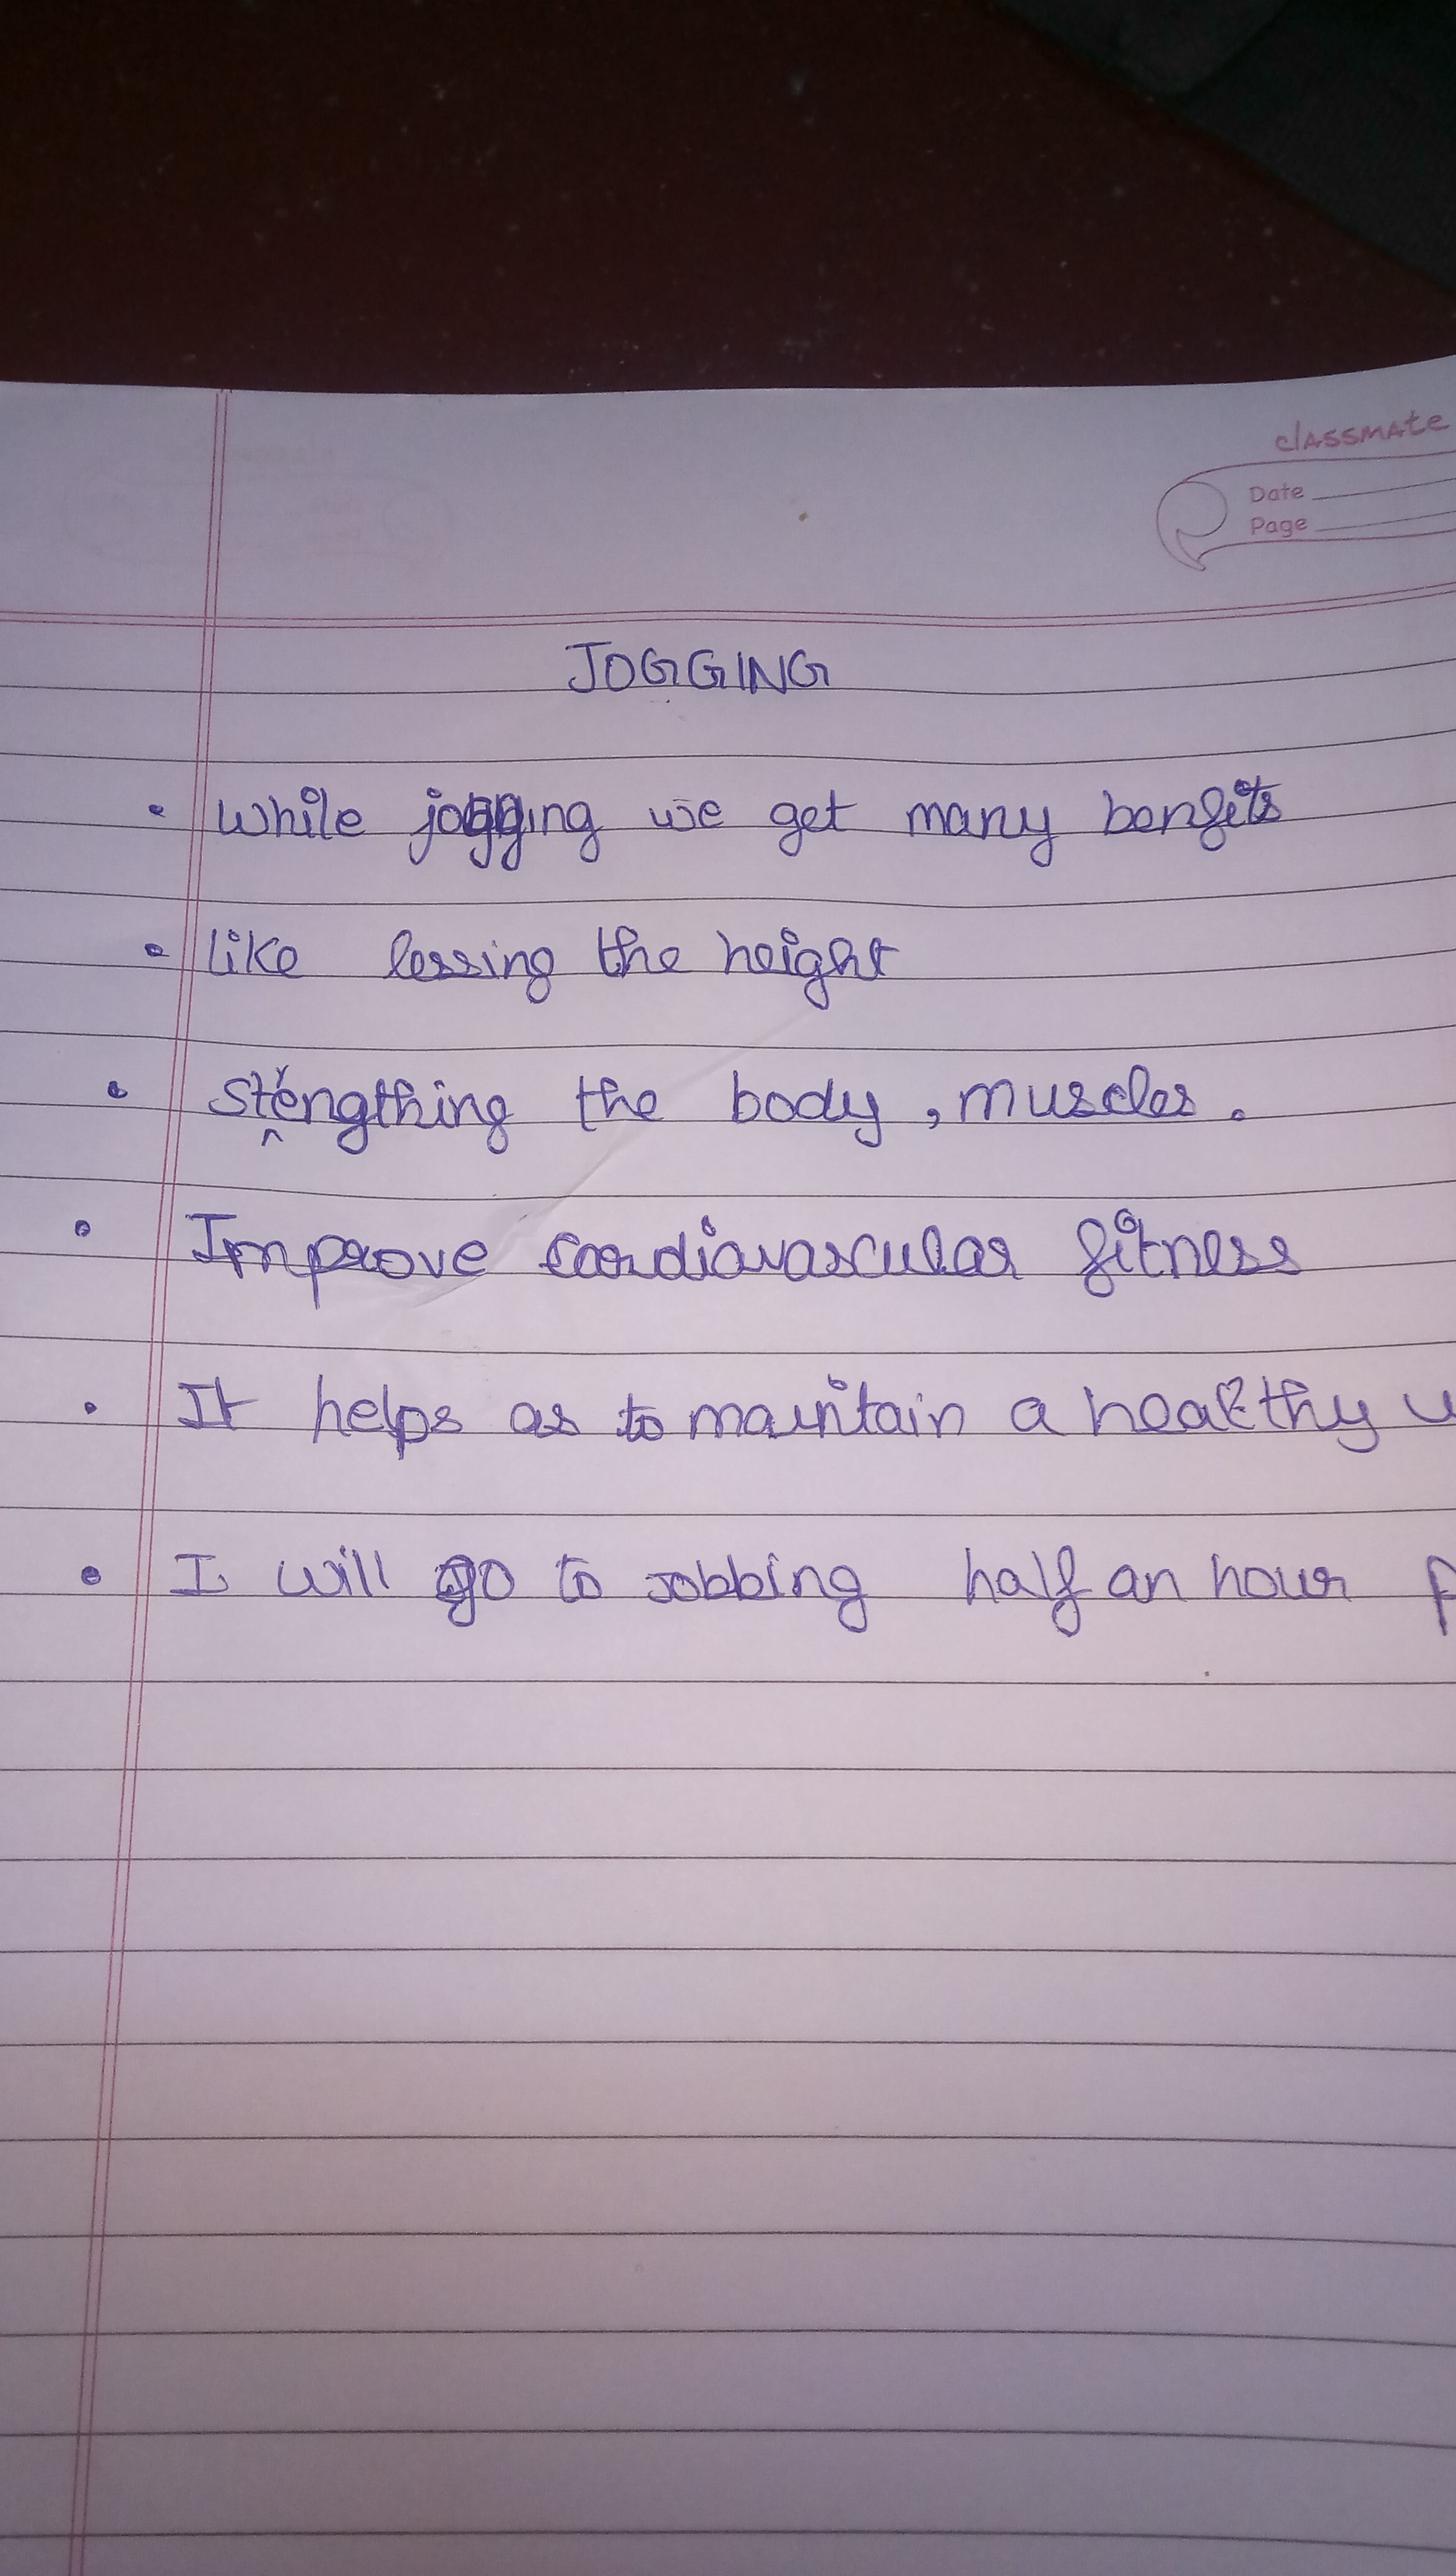 classmate
Date
Page
JOGGING
• while jogging we get many benfits
• like lessing the height
• strengthing the body, muscles.
• Improve cardiavascular fitness
• It helps as to maintain a healthy
• I will go to jobbing half an hour